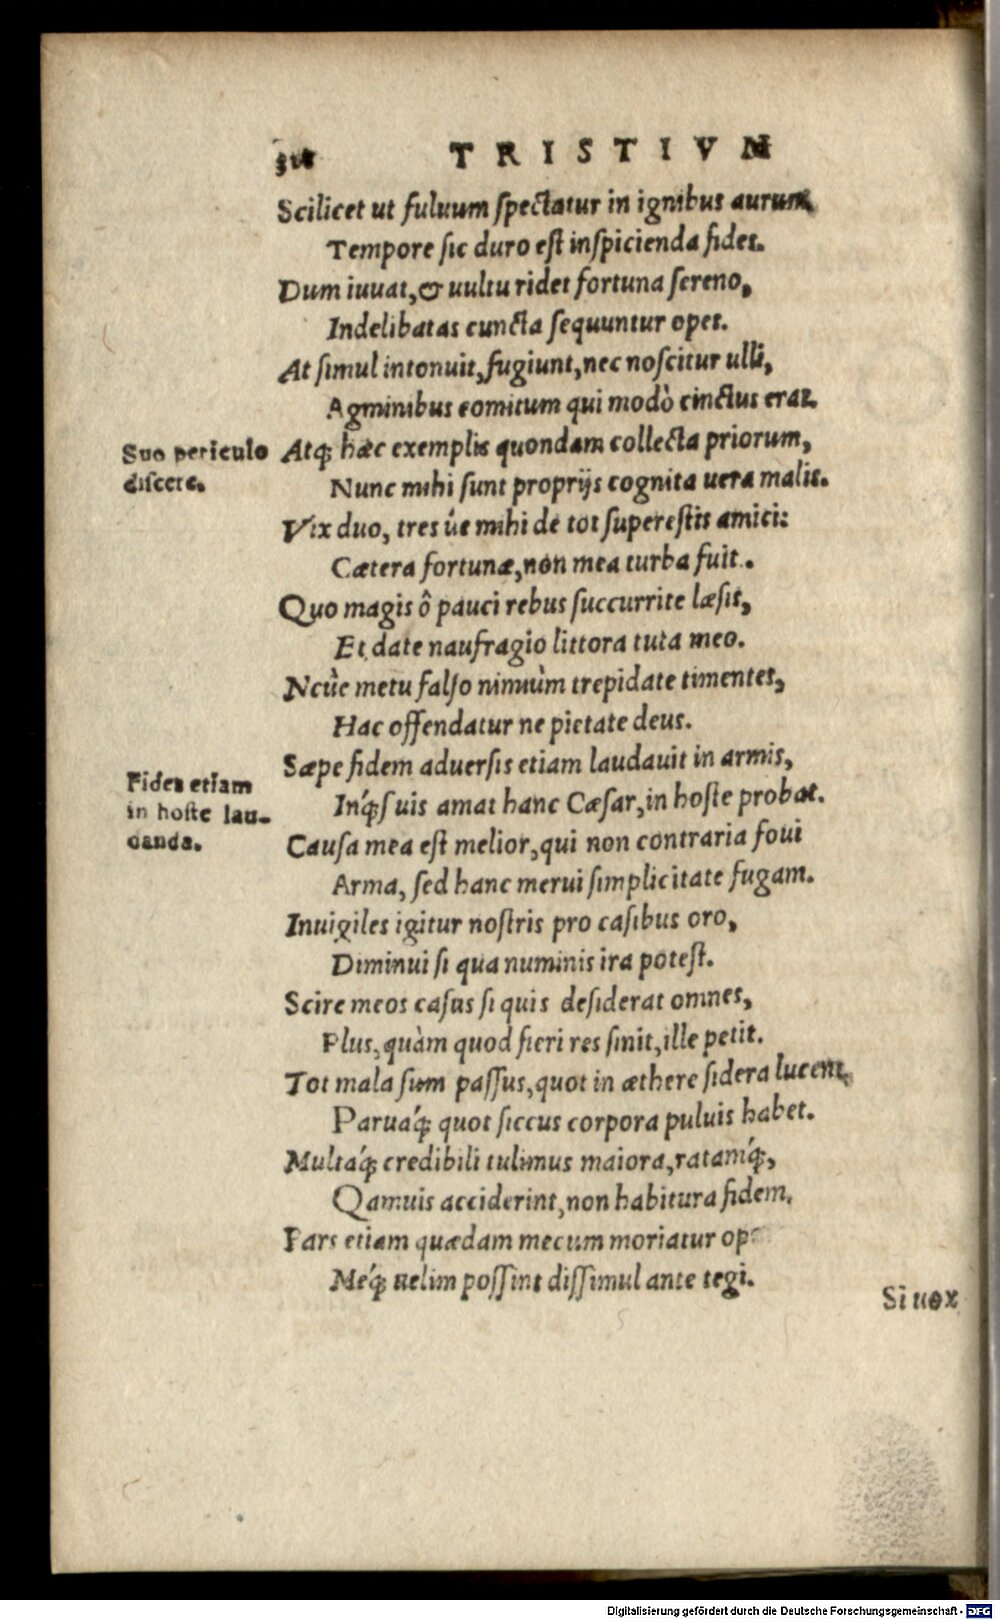 TRISTIVM
Scilicet ut fuluum spectatur in ignibus aurum,
Tempore sic duro est inspicienda fides.
Dum iuuat, & uultu ridet fortuna sereno,
Indelibatas cuncta sequuntur opes.
At simul intonuit, fugiunt, nec noscitur ulli,
Agminibus comitum qui modò cinctus erat.
Suo periculo
discere.
Atq; hæc exemplis quondam collecta priorum,
Nunc mihi sunt proprijs cognita uera malis.
Vix duo, tres úe mihi de tot superestis amici:
Cætera fortunæ, non mea turba fuit.
Quo magis ô pauci rebus succurrite læsis,
Et date naufragio littora tuta meo.
Neûe metu falso nimiùm trepidate timentes,
Hac offendatur ne pietate deus.
Sæpe fidem aduersis etiam laudauit in armis,
Fides etiam
in hoste lau-
danda.
Inq́; suis amat hanc Cæsar, in hoste probat.
Causa mea est melior, qui non contraria foui
Arma, sed hanc merui simplicitate fugam.
Inuigiles igitur nostris pro casibus oro,
Diminui si qua numinis ira potest.
Scire meos casus si quis desiderat omnes,
Plus, quàm quod fieri res sinit, ille petit.
Tot mala sum passus, quot in æthere sidera lucent,
Paruaq́; quot siccus corpora puluis habet.
Multaq́; credibili tulimus maiora, ratamq́;,
Qamuis acciderint, non habitura fidem.
Pars etiam quædam mecum moriatur
Meq́; uelim possint dissimulante tegi.
Si uox
Digitalisierung gefördert durch die Deutsche Forschungsgemeinschaft - DFG